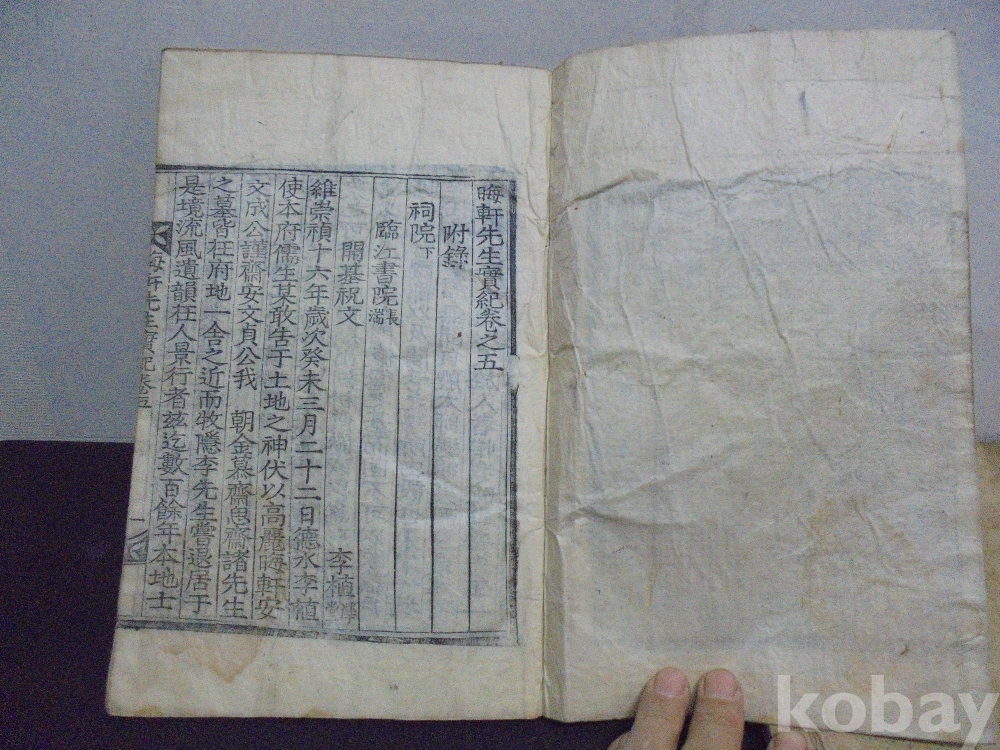 晦軒先生實紀卷之五
附錄
祠院下
臨江書院長湍
開基祝文 李植
維崇禎十六年歲次癸未三月二十二日德水李植
使本府儒生某敢告于土地之神伏以高麗晦軒安
文成公謹齋安文貞公我 朝金慕齋思齋諸先生
之墓皆在府地一舍之近而牧隱李先生嘗退居于
是境流風遺韻在人景行者玆迄數百餘年本地士
晦軒先生實紀卷五
一
kobay